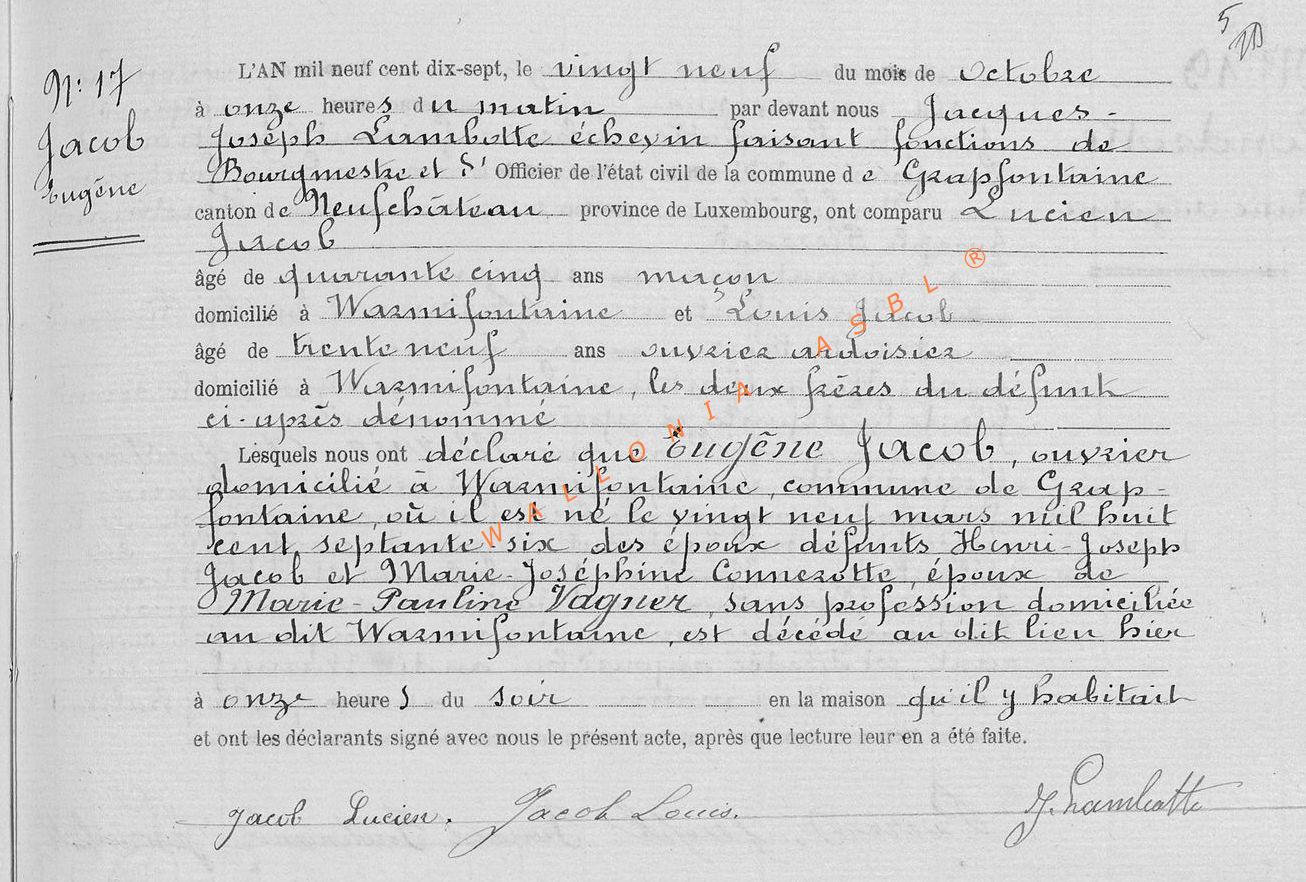 5
N: 17
Jacob
Eugène
L'AN mil neuf cent dix-sept, le vingt neuf du mois de Octobre
à onze heures du matin par devant nous Jacques-
Joseph Lambotte échevin faisant fonctions de
Bourgmestre et Officier de l'état civil de la commune de Grapfontaine
canton de Neufchâteau province de Luxembourg, ont comparu Lucien
Jacob
âgé de quarante cinq ans maçon
domicilié à Warmifontaine et Louis Jacob
âgé de trente neuf ans ouvrier ardoisier
domicilié à Warmifontaine, les deux frères du défunt
ci-après dénommé
Lesquels nous ont déclaré que Eugène Jacob, ouvrier
domicilié à Warmifontaine, commune de Grap-
fontaine, où il est né le vingt neuf mars mil huit
cent septante-six des époux défunts Henri-Joseph
Jacob et Marie-Joséphine Connerotte, époux de
Marie-Pauline Vagner, sans profession domiciliée
au dit Warmifontaine, est décédé au dit lieu hier
à onze heures du soir en la maison qu'il y habitait
et ont les déclarants signé avec nous le présent acte, après que lecture leur en a été faite.
Jacob Lucien. Jacob Louis. J. Lambotte
WALLONIA ASBL ®